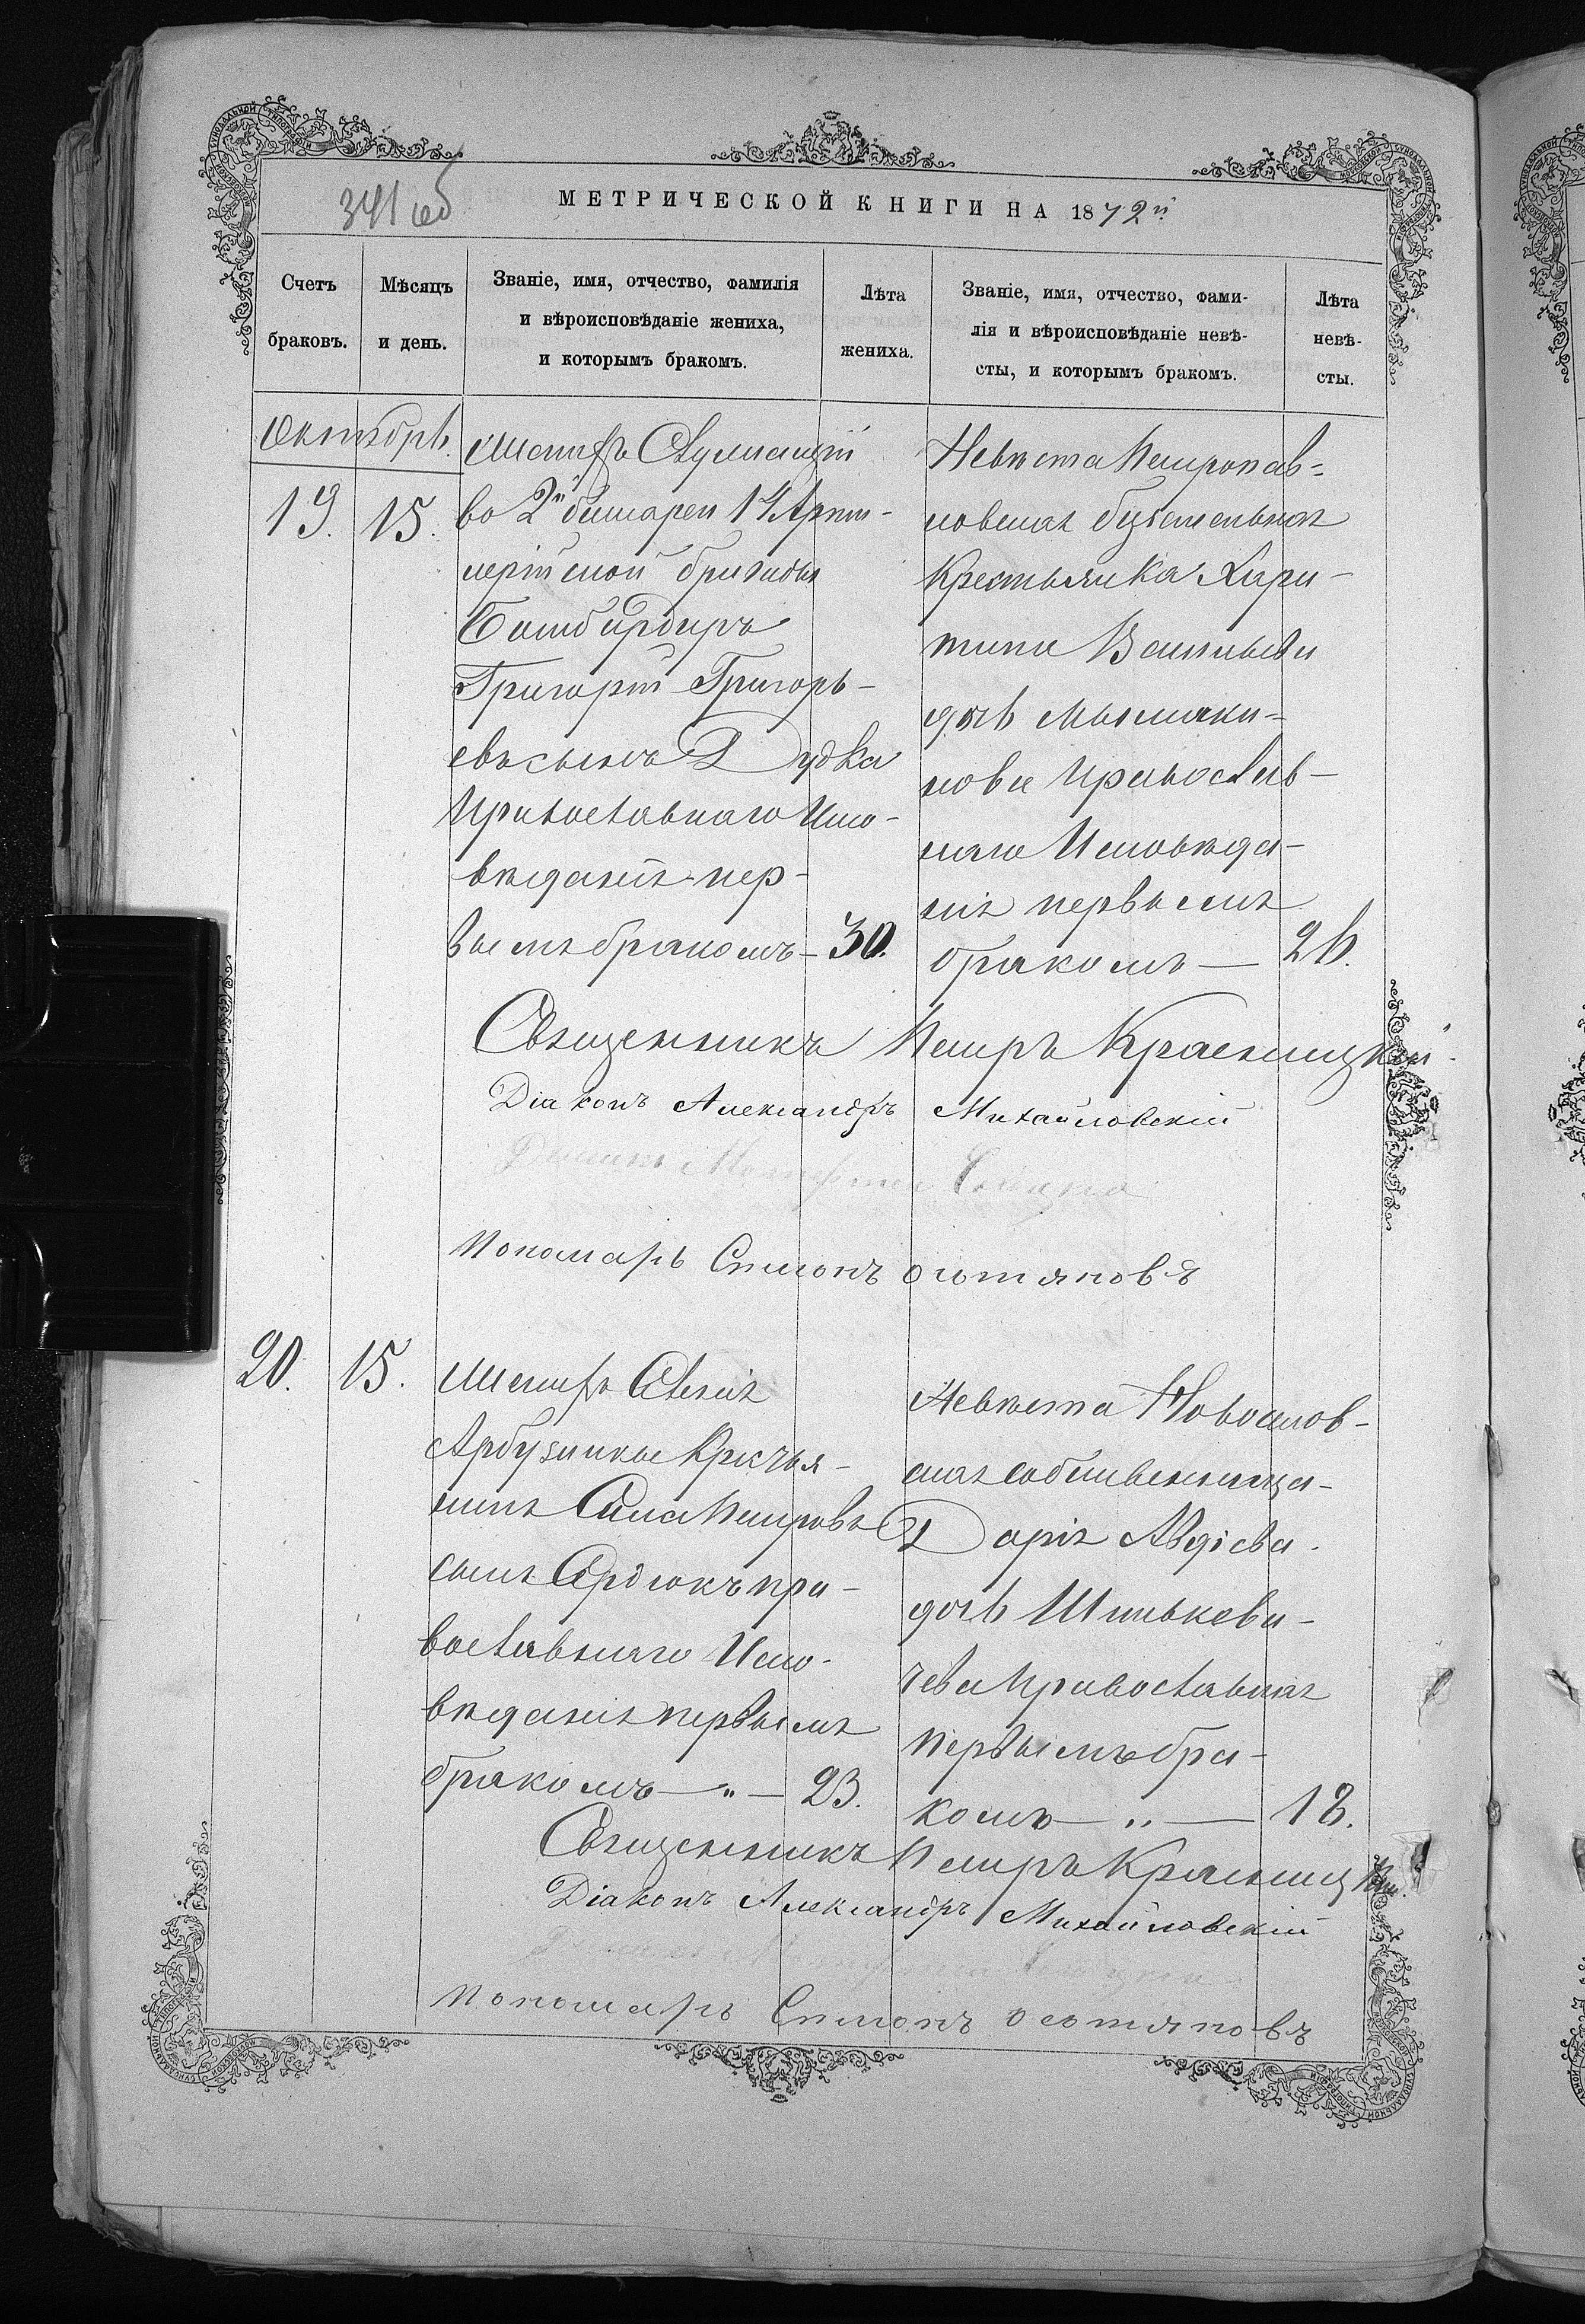 341 об
МЕТРИЧЕСКОЙ КНИГИ НА 1872й
Счетъ браковъ.
Мѣсяцъ и день.
Званіе, имя, отчество, фамилія
и вѣроисповѣданіе жениха,
и которымъ бракомъ.
Лѣта жениха.
Званіе, имя, отчество, фами-
лія и вѣроисповѣданіе невѣ-
сты, и которымъ бракомъ.
Лѣта невѣ-
сты.
Октябрь.
19. 15.
Женихъ Служащій
во 2й батареи 14 Арти-
лерійской бригады
Бомбардиръ
Григорій Григорь-
евъ сынъ Дудка
Православнаго Испо-
вѣданія пер-
вымъ бракомъ - 30.
Невѣста Петропав-
ловская
Крестьянка Хари-
тина Васильева
дочь
нова Православ-
наго Исповѣда-
нія первымъ
бракомъ — 26.
Священникъ Петръ Красницкій
Діаконъ Александръ Михайловскій
Пономарь Симонъ
20. 15.
Женихъ Селенія
Арбузинки Крстья-
нинъ Сила Петровъ
сынъ Сердюкъ пра-
вославнаго Испо-
вѣданія первымъ
бракомъ — " — 23.
Невѣста
ская собственница-
Дарія Авдіева.
дочь Шинькеви-
чева Православная
первымъ бра-
комъ — " — 18.
Священникъ Петръ Красницкій.
Діаконъ Александръ Михайловскій
Пономарь Симонъ